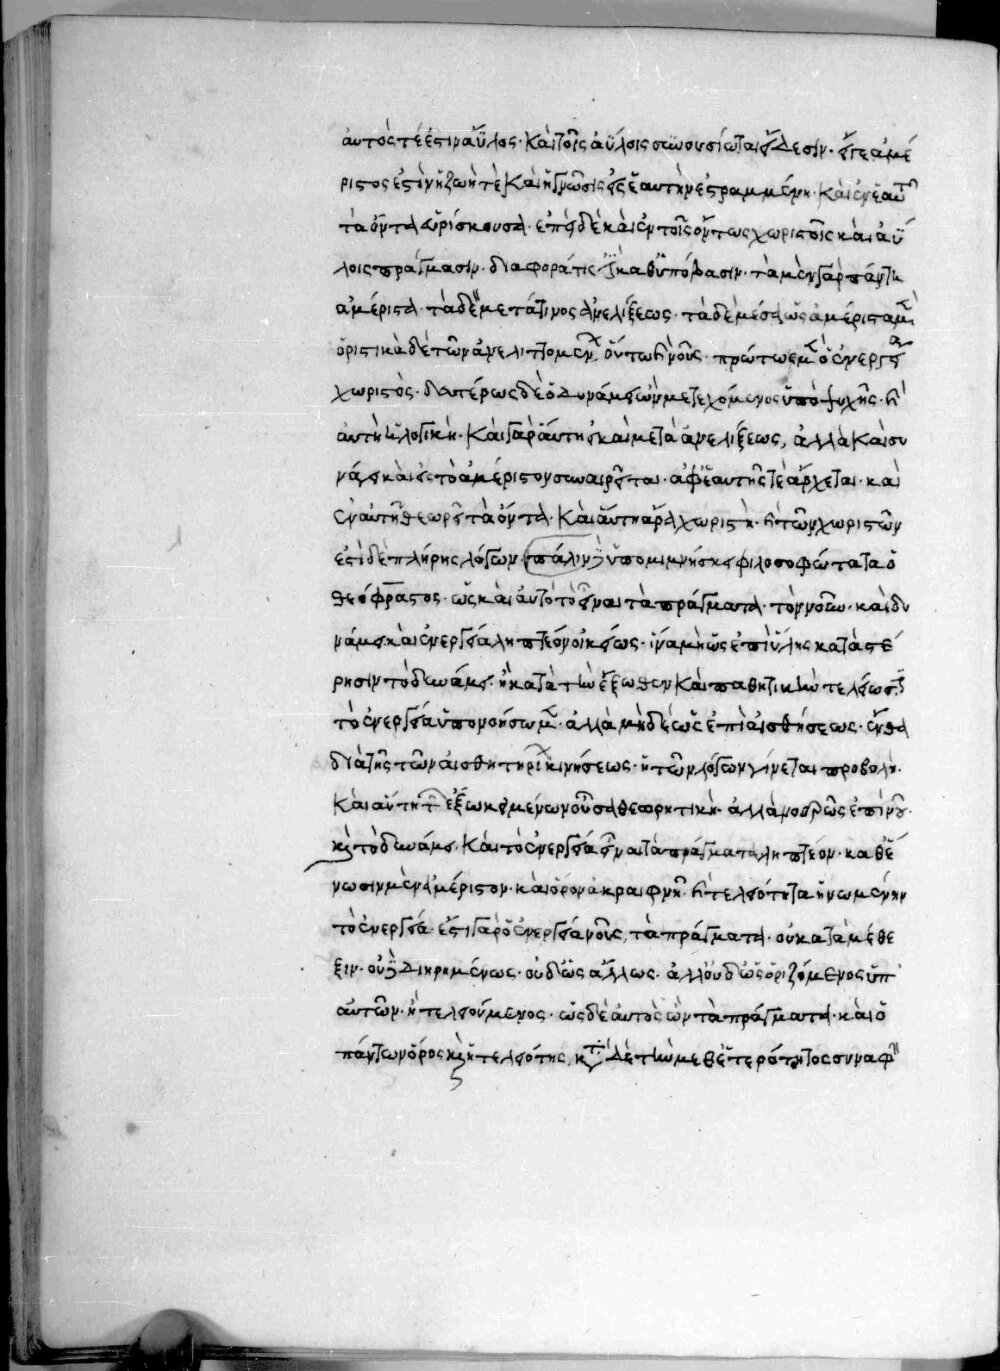 αὐτός τέ ἐστιν ἄϋλος· καὶ τοῖς ἀΰλοις συνουσίωται εἴδεσιν· εἴτε ἀμέ
ριστος ἐστὶν ἡ ζωή τε καὶ ἡ γνῶσις εἰς ἑαυτὴν ἐστραμμένη· καὶ ἐν ἑαυτῇ
τὰ ὄντα εὑρίσκουσα· ἐπεὶ δὲ καὶ ἐν τοῖς ὄντως χωριστοῖς καὶ ἀΰ
λοις πράγμασιν· διαφορά τις ἡ καθ' ὑπόβασιν· τὰ μὲν γὰρ πάντη
ἀμέριστα· τὰ δὲ μετά τινος ἀνελίξεως· τὰ δὲ μέσα ὡς ἀμέριστα μὲν
ὁριστικὰ δὲ τῶν ἀνελιττομένων, οὕτω καὶ νοῦς· πρώτως μὲν ὁ ἐνεργείᾳ
χωριστός· δευτέρως δὲ ὁ δυνάμει ὢν μετεχόμενος ὑπὸ ψυχῆς· καὶ
αὐτὴ ἡ λογική· καὶ γὰρ αὕτη εἰ καὶ μετὰ ἀνελίξεως, ἀλλὰ καὶ συ
νάγει καὶ εἰς τὸ ἀμέριστον συναιρεῖται· ἀφ' ἑαυτῆς τε ἄρχεται· καὶ
ἐν αὑτῇ θεωρεῖ τὰ ὄντα· καὶ αὕτη ἄρα χωριστή· καὶ τῶν χωριστῶν
ἐστὶ δὲ πλήρης λόγων· πάλιν ὑπομιμνήσκει φιλοσοφώτατα ὁ
θεόφραστος· ὡς καὶ αὐτὸ τὸ εἶναι τὰ πράγματα· τὸν νοῦν· καὶ δυ
νάμει καὶ ἐνεργείᾳ ληπτέον οἰκείως· ἵνα μὴ ὡς ἐπὶ ὕλης κατὰ στέ
ρησιν τὸ δυνάμει· ἢ κατὰ τὴν ἔξωθεν καὶ παθητικὴν τελείωσιν
τὸ ἐνεργείᾳ ὑπονοήσωμεν· ἀλλὰ μηδὲ ὡς ἐπὶ αἰσθήσεως· ἔνθα
διὰ τῆς τῶν αἰσθητηρίων κινήσεως· ἡ τῶν λόγων γίνεται προβολή·
καὶ αὕτη τῶν ἔξω κειμένων οὖσα θεωρητική· ἀλλὰ νοερῶς ἐπὶ νοῦ·
καὶ τὸ δυνάμει· καὶ τὸ ἐνεργείᾳ εἶναι τὰ πράγματα ληπτέον· καθ' ἕ
νωσιν μὲν ἀμέριστον· καὶ ὅρον ἀκραιφνῆ· καὶ τελειότητα ἡνωμένην
τὸ ἐνεργείᾳ· ἔστι γὰρ ὁ ἐνεργείᾳ νοῦς, τὰ πράγματα· οὐ κατὰ μέθε
ξιν· οὐδὲ διῃρημένως· οὐδ' ὡς ἄλλως· ἀλλ' οὐδ' ὡς ὁριζόμενος ὑπ'
αὐτῶν· ἢ τελειούμενος· ὡς δὲ αὐτὸς ὢν τὰ πράγματα· καὶ ὁ
πάντων ὅρος καὶ ἡ τελειότης, κατὰ δὲ τὴν μεθ' ἑτερότητος συναφὴν